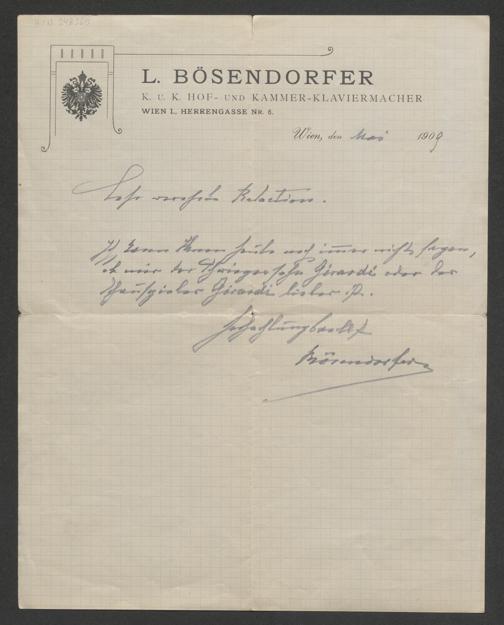 L. BÖSENDORFER
K. U. K. HOF- UND KAMMER-KLAVIERMACHER
WIEN I., HERRENGASSE NR. 6.
Wien, den Mai 1909
Sehr verehrte Redaction.
Ich kann Ihnen heute noch immer nicht sagen,
ob mir der Schwiegersohn Girardi oder der
Schauspieler Girardi lieber ist.
Hochachtungsvollst
Bösendorfer